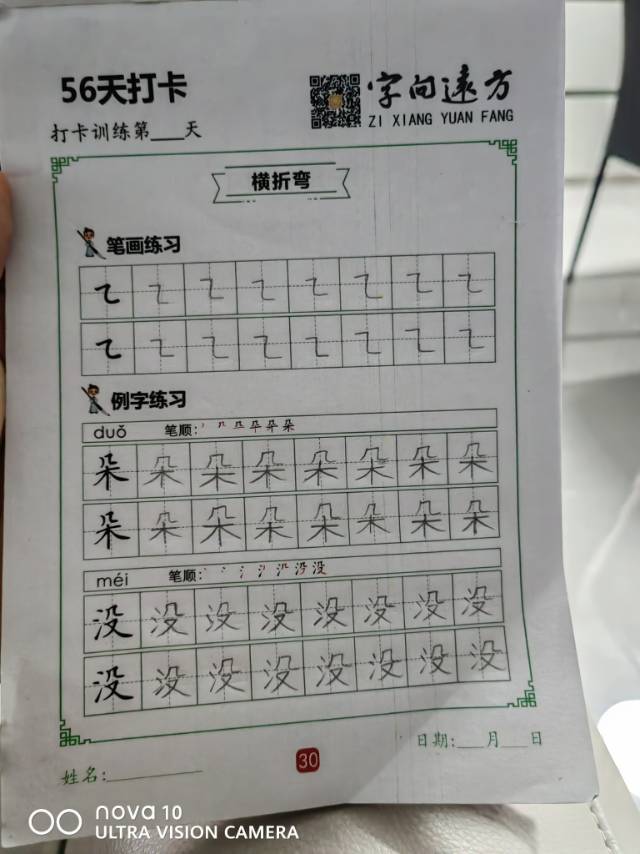 56天打卡
字向遠方
ZI XIANG YUAN FANG
打卡训练第___天
横折弯
笔画练习
㇍ ㇍ ㇍ ㇍ ㇍ ㇍ ㇍ ㇍
㇍ ㇍ ㇍ ㇍ ㇍ ㇍ ㇍ ㇍
例字练习
duǒ 笔顺:
朵 朵 朵 朵 朵 朵 朵 朵
朵 朵 朵 朵 朵 朵 朵 朵
méi 笔顺:
没 没 没 没 没 没 没 没
没 没 没 没 没 没 没 没
日期:___月___日
姓名:________
30
nova 10
ULTRA VISION CAMERA